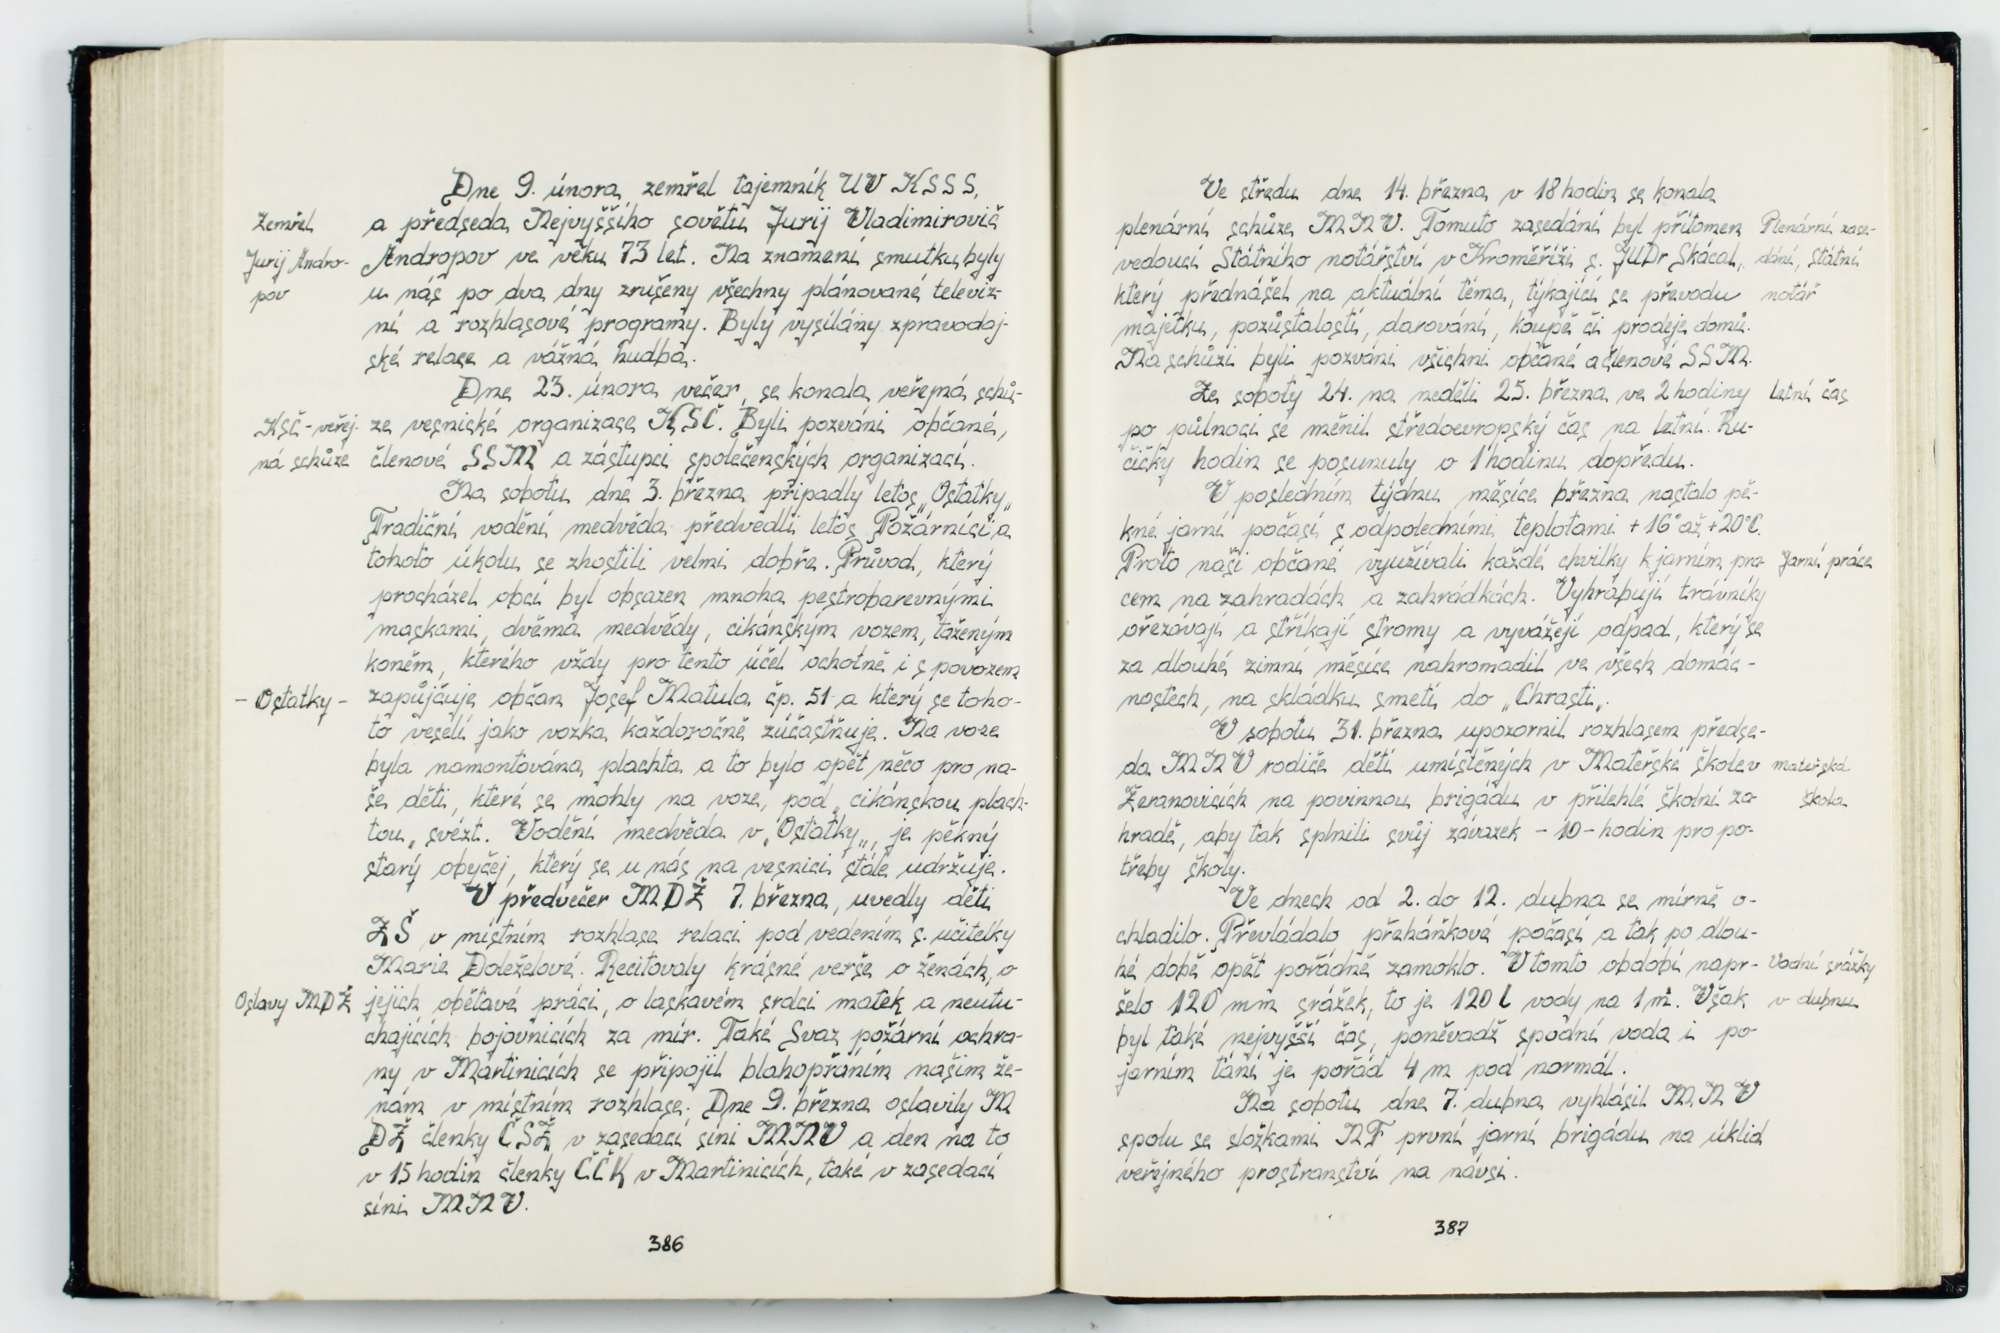 Dne 9. února zemřel tajemník UV KSSS,
Zemřel
a předseda Nejvyššího sovětu Jurij Vladimirovič
Jurij Andro-
Andropov ve věku 73 let. Na znamení smutku byly
pov
u nás po dva dny zrušeny všechny plánované televiz-
ní a rozhlasové programy. Byly vysílány zpravodaj-
ské relace a vážná hudba.
Dne 23. února večer, se konala veřejná schů-
KSČ-veřej-
ze vesnické organizace KSČ. Byli pozváni občané,
ná schůze
členové SSM a zástupci společenských organizací.
Na sobotu dne 3. března připadly letos „Ostatky„
Tradiční vodění medvěda předvedli letos Požárníci a
tohoto úkolu se zhostili velmi dobře. Průvod, který
procházel obcí byl obsazen mnoha pestrobarevnými
maskami, dvěma medvědy, cikánským vozem, taženým
koněm, kterého vždy pro tento účel ochotně i s povozem
- Ostatky -
zapůjčuje občan Josef Matula čp. 51 a který se toho-
to veselí jako vozka každoročně zúčastňuje. Na voze
byla namontována plachta a to bylo opět něco pro na-
še děti, které se mohly na voze, pod „cikánskou plach-
tou„ svézt. Vodění medvěda v „Ostatky„, je pěkný
starý obyčej, který se u nás na vesnici stále udržuje.
V předvečer MDŽ 7. března, uvedly děti
ZŠ v místním rozhlase relaci pod vedením s. učitelky
Marie Doleželové. Recitovaly krásné verše o ženách, o
Oslavy MDŽ
jejich obětavé práci, o laskavém srdci matek a neutu-
chajících bojovnicích za mír. Také Svaz požární ochra-
ny v Martinicích se připojil blahopřáním našim že-
nám v místním rozhlase. Dne 9. března oslavily M
DŽ členky ČSŽ v zasedací síni MNV a den na to
v 15 hodin členky ČČK v Martinicích, také v zasedací
síni MNV.
386
Ve středu dne 14. března v 18 hodin se konala
plenární schůze MNV. Tomuto zasedání byl přítomen
Plenární zase-
vedoucí Státního notářství v Kroměříži s. JUDr Skácal,
dání, státní
který přednášel na aktuální téma, týkající se převodu
notář
majetku, pozůstalostí, darování, koupě či prodeje domů.
Na schůzi byli pozváni všichni občané a členové SSM.
Ze soboty 24. na neděli 25. března ve 2 hodiny
Letní čas
po půlnoci se měnil středoevropský čas na letní. Ru-
čičky hodin se posunuly o 1 hodinu dopředu.
V posledním týdnu měsíce března nastalo pě-
kné jarní počasí s odpoledními teplotami +16° až +20°C.
Proto naši občané využívali každé chvilky k jarním pra-
Jarní práce
cem na zahradách a zahrádkách. Vyhrabují trávníky
ořezávají a stříkají stromy a vyvážejí odpad, který se
za dlouhé zimní měsíce nahromadil ve všech domác-
nostech, na skládku smetí do „Chrasti„.
V sobotu 31. března upozornil rozhlasem předse-
da MNV rodiče dětí umístěných v Mateřské škole v
mateřská
Žeranovicích na povinnou brigádu v přilehlé školní za-
škola
hradě, aby tak splnili svůj závazek - 10 - hodin pro po-
třeby školy.
Ve dnech od 2. do 12. dubna se mírně o-
chladilo. Převládalo přeháňkové počasí a tak po dlou-
hé době opět pořádně zamoklo. V tomto období napr-
Vodní srážky
šelo 120 mm srážek, to je 120 l vody na 1 m². Však
v dubnu
byl také nejvyšší čas, poněvadž spodní voda i po
jarním tání je pořád 4 m pod normál.
Na sobotu dne 7. dubna vyhlásil MNV
spolu se složkami NF první jarní brigádu na úklid
veřejného prostranství na návsi.
387